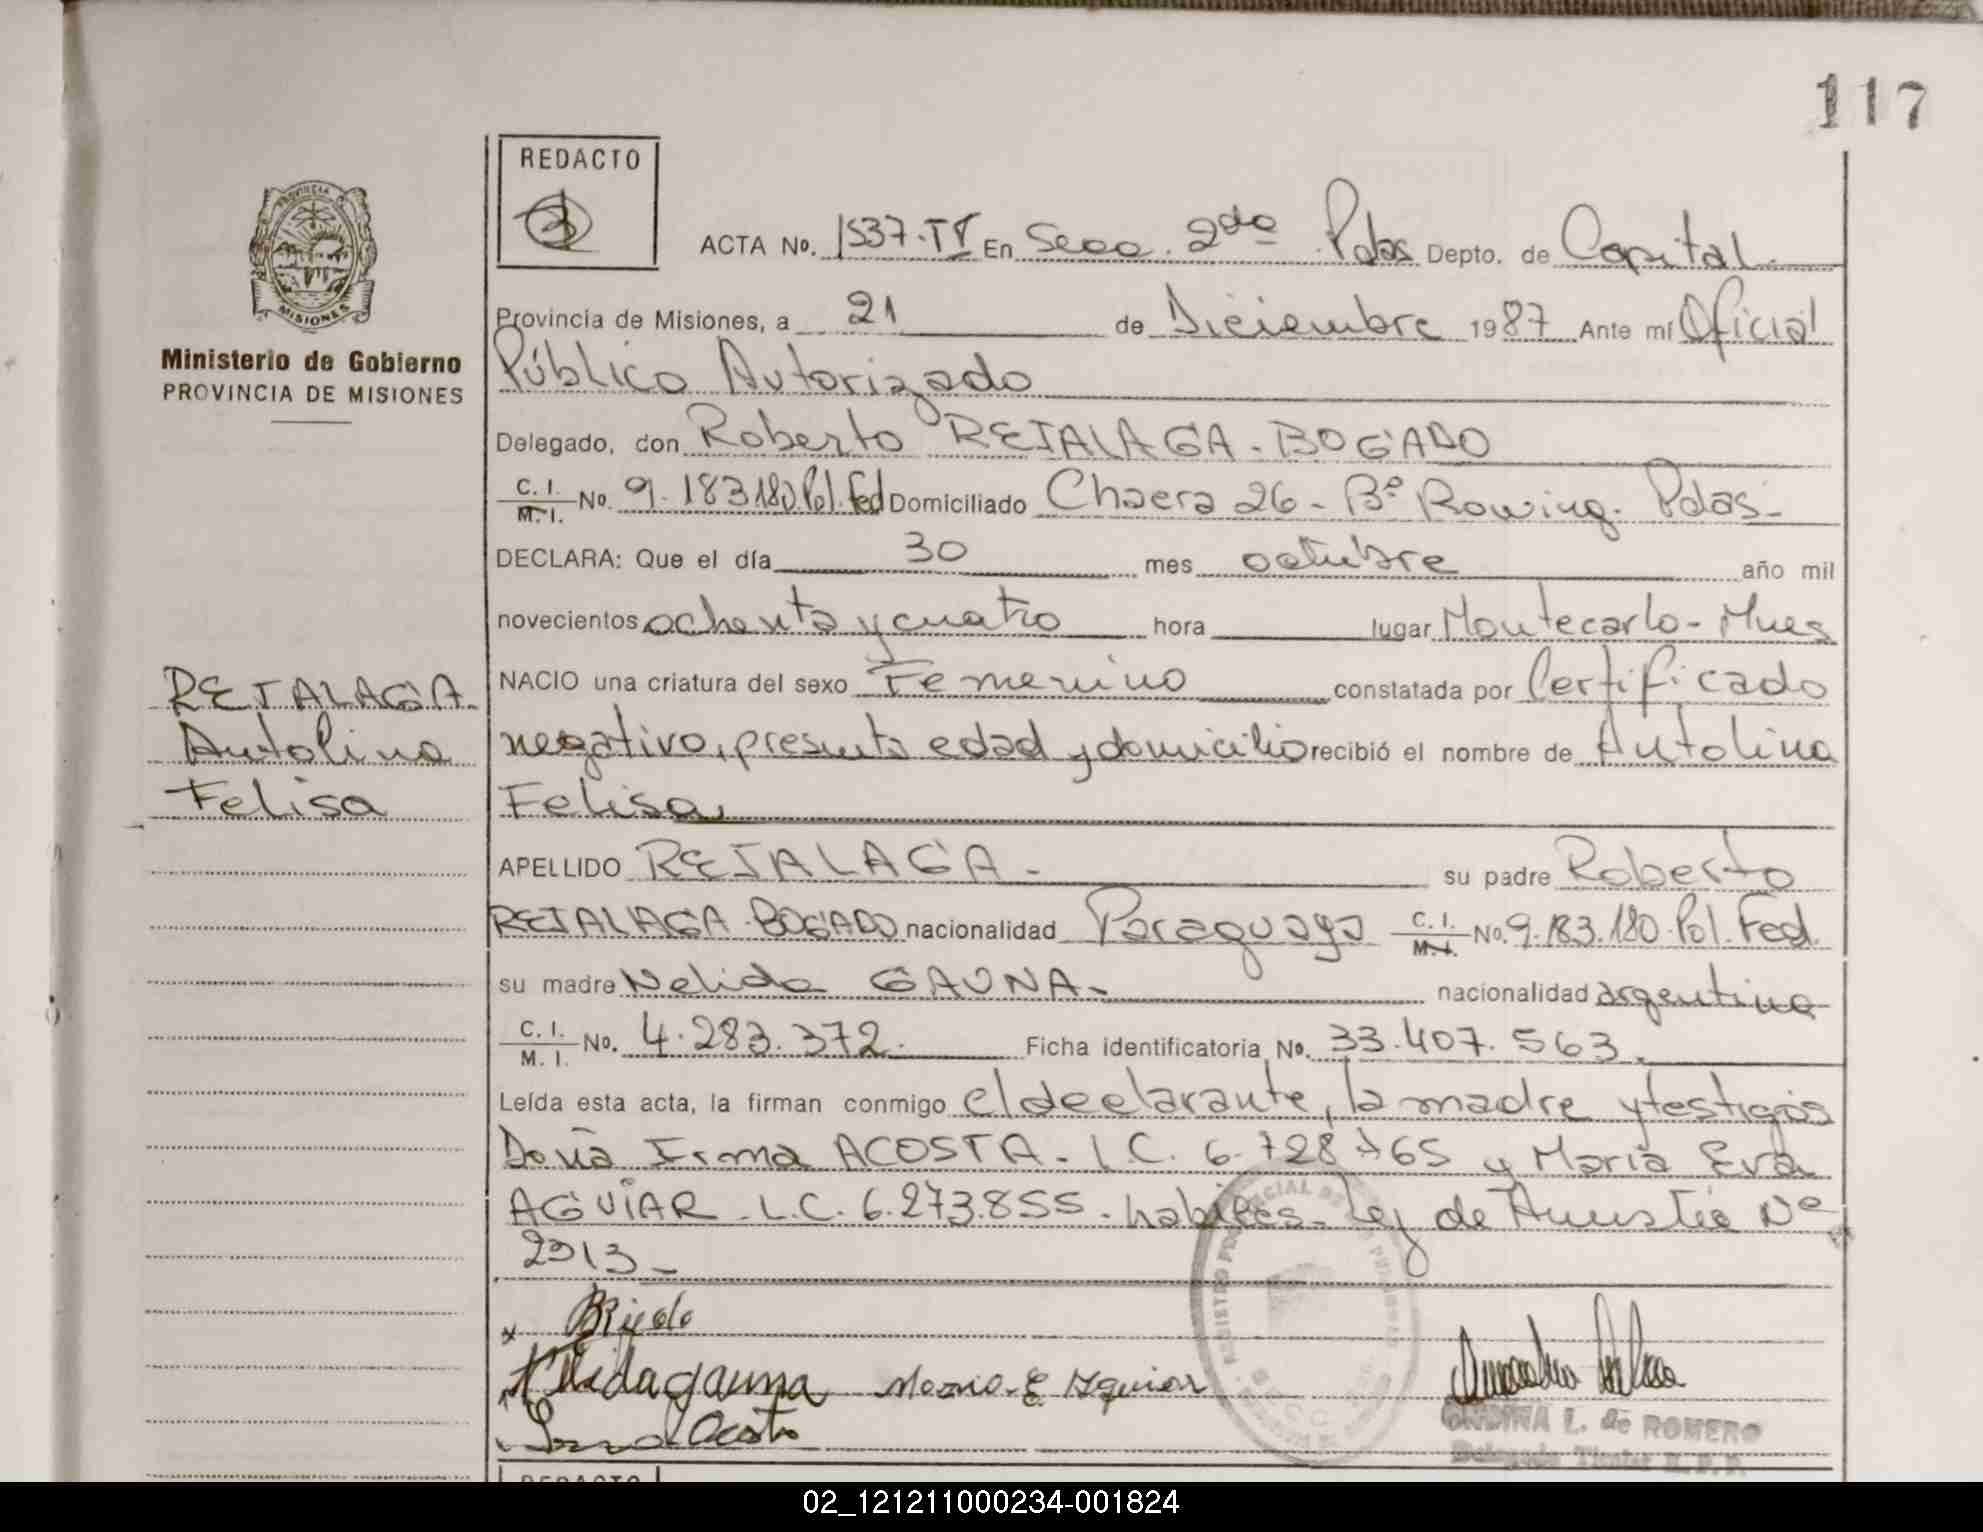 117
REDACTO
PROVINCIA
MISIONES
Ministerio de Gobierno
PROVINCIA DE MISIONES
ACTA No. 1537.TI En Secc. 2da Pdas Depto. de Capital.
Provincia de Misiones, a 21 de Diciembre 1987 Ante mí Oficial
Público Autorizado
Delegado, don Roberto REJALAGA - BOGADO
C. I. M. I. No. 9.183180 Pol. Fed Domiciliado Chacra 26 - Bº Rowing. Pdas-
DECLARA: Que el día 30 mes octubre año mil
novecientos ochenta y cuatro hora lugar Montecarlo - Mnes
NACIO una criatura del sexo Femenino constatada por Certificado
negativo, presunta edad y domicilio recibió el nombre de Antolina
Felisa
REJALAGA
Antolina
Felisa
APELLIDO REJALAGA - su padre Roberto
REJALAGA - BOGADO nacionalidad Paraguaya C. I. M. I. No. 9.183.180 Pol. Fed.
su madre Nelida GAUNA - nacionalidad argentina
C. I. M. I. No. 4.283.372. Ficha identificatoria No. 33.407.563.
Leída esta acta, la firman conmigo el declarante, la madre y testigos
Doña Irma ACOSTA - L.C. 6.728765 y María Eva
AGUIAR - L.C. 6.273.855 - habiles - Ley de Amnistia Nº
2313 -
Nelida gauna Maria E Aguiar
Irma Acosta
L. de ROMERO
Delegada Titular R. P. P.
REDACTO
02_121211000234-001824